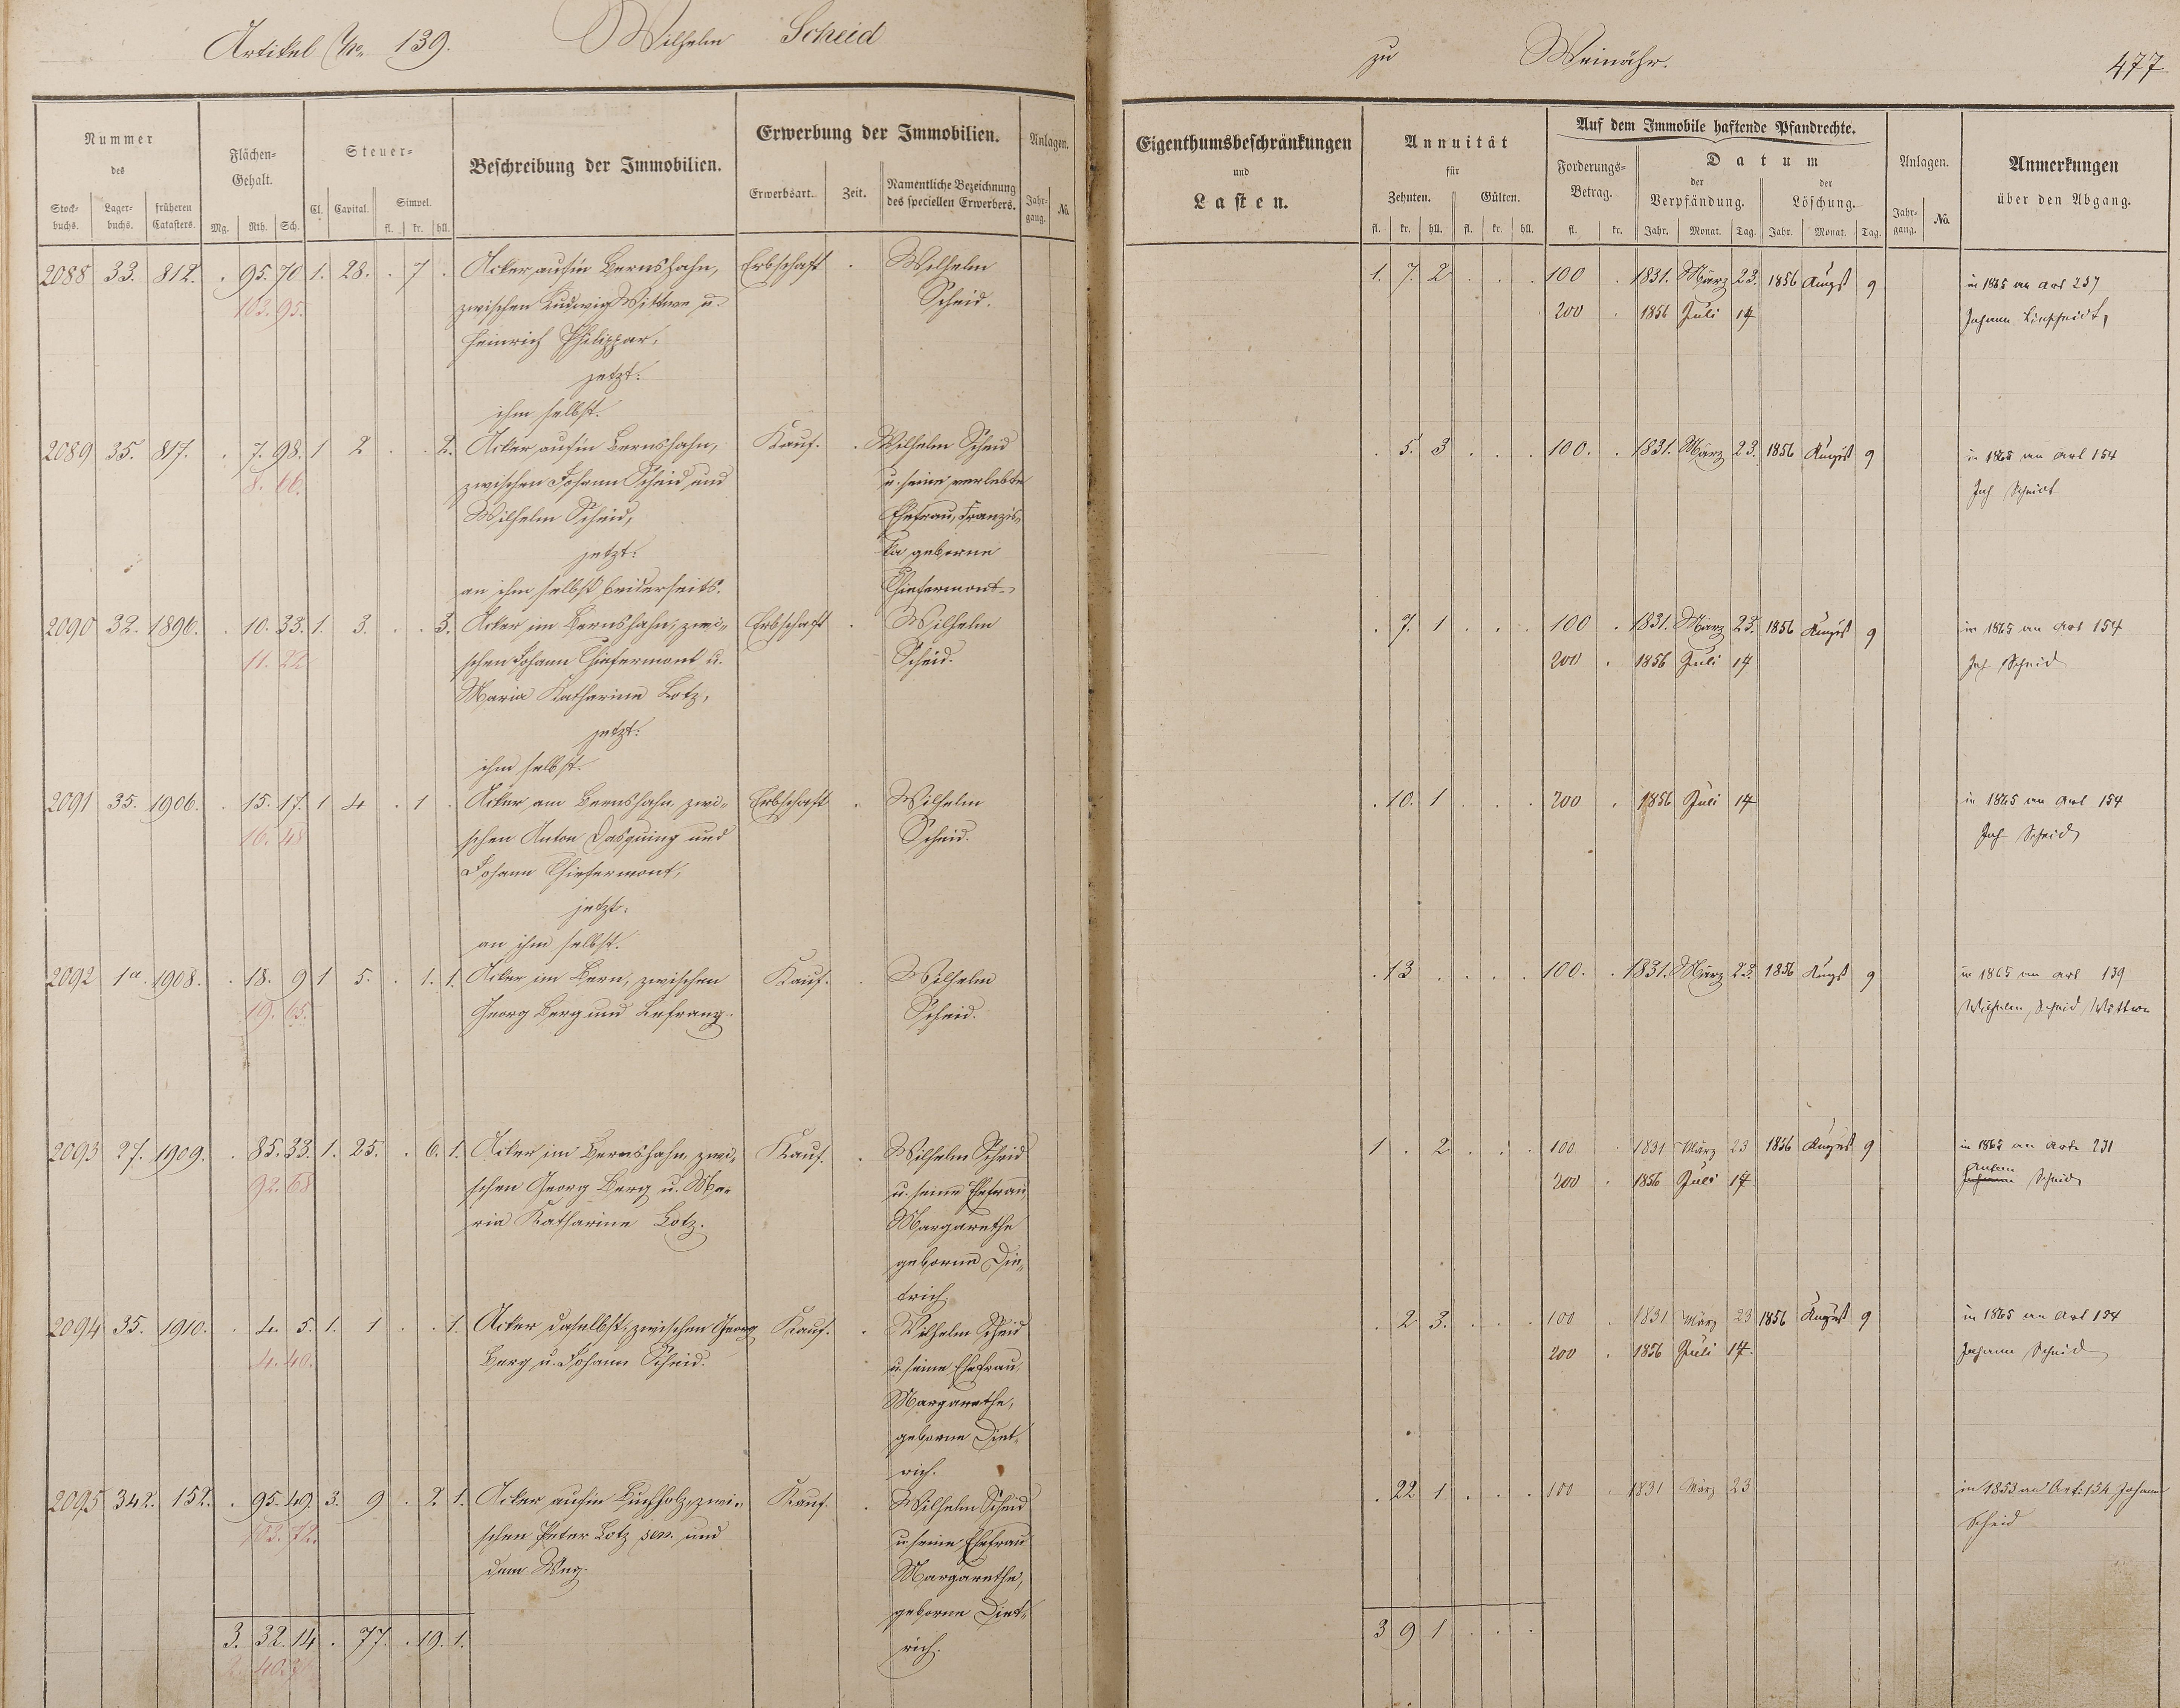 Artikel No. 139. Wilhelm Scheid zu Weinähr. 477
Nummer des
Stock-buchs. Lager-buchs. früheren Catasters.
Flächen-Gehalt.
Mg. Rth. Sch.
Steuer-
Cl. Capital. Simpel.
fl. kr. hll.
Beschreibung der Immobilien.
Erwerbung der Immobilien.
Erwerbsart. Zeit. Namentliche Bezeichnung des speciellen Erwerbers.
Anlagen.
Jahr-gang. No.
Eigenthumsbeschränkungen
und
Lasten.
Annuität
für
Zehnten. Gülten.
fl. kr. hll. fl. kr. hll.
Auf dem Immobile haftende Pfandrechte.
Forderungs-Betrag.
fl. kr.
Datum
der Verpfändung. der Löschung.
Jahr. Monat. Tag. Jahr. Monat. Tag.
Anlagen.
Jahr-gang. No.
Anmerkungen
über den Abgang.
2088 33. 812. . 95. 70 1. 28. . 7 . Acker auf'm Bernshahn, Erbschaft . Wilhelm 1. 7. 2 . . . 100 . 1831. März 23. 1856 August 9 in 1865 an Art 237
103. 95. zwischen Ludwig Wittwe u. Scheid. 200 . 1856 Juli 14 Johann Linscheidt
Heinrich Philippar,
jetzt:
ihm selbst.
2089 35. 817. . 7. 98. 1 2 . . 2. Acker auf'm Bernshahn, Kauf. . Wilhelm Scheid . 5. 3 . . . 100. . 1831. März 23. 1856 August 9 in 1865 an Art 154
8. 66. zwischen Johann Scheid und u. seine verlebte Joh Scheid
Wilhelm Scheid, Ehefrau, Franzis-
jetzt: ka geborne
an ihm selbst beiderseits. Thiefermont
2090 32. 1896. . 10. 33. 1. 3. . . 3. Acker im Bernshahn, zwi- Erbschaft . Wilhelm . 7. 1 . . . 100 . 1831. März 23. 1856 August 9 in 1865 an Art 154
11. 22 schen Johann Thiefermont u. Scheid. 200 . 1856 Juli 14 Joh Scheid
Maria Katharina Lotz,
jetzt:
ihm selbst.
2091 35. 1906. . 15. 17. 1 4 . 1 . Acker am Bernshahn zwi- Erbschaft . Wilhelm . 10. 1 . . . 200 . 1856 Juli 14 in 1865 an Art 154
16. 48 schen Anton Dasquing und Scheid. Joh Scheid
Johann Thiefermont,
jetzt:
an ihm selbst.
2092 1a. 1908. . 18. 9 1 5. . 1. 1. Acker im Bern, zwischen Kauf. . Wilhelm . 13 . . . . 100. . 1831. März 23. 1856 August 9 in 1865 an Art 139
19. 65. Georg Berg und Lefranz. Scheid. Wilhelm Scheid Wittwe
2093 27. 1909. . 85. 33. 1. 25. . 6. 1. Acker im Bernshahn, zwi- Kauf. . Wilhelm Scheid 1 . 2 . . . 100 . 1831 März 23 1856 August 9 in 1865 an Art. 231
92. 68 schen Georg Berg u. Ma- u. seine Ehefrau 200 . 1856 Juli 14 Scheid
ria Katharina Lotz. Margarethe
geborne Die-
trich.
2094 35. 1910. . 4. 5. 1. 1 . . 1. Acker daselbst, zwischen Georg Kauf. . Wilhelm Scheid . 2 3. . . . 100 . 1831 März 23 1856 August 9 in 1865 an Art 154
4. 40. Berg u. Johann Scheid. u. seine Ehefrau 200 . 1856 Juli 14. Johann Scheid
Margarethe,
geborne Diet-
rich.
2095 342. 152. . 95. 49. 3. 9 . 2 1. Acker auf'm Buchholz, zwi- Kauf. . Wilhelm Scheid . 22 1 . . . 100 . 1831 März 23 in 1853 an Art: 154 Johann
103. 72. schen Peter Lotz sen. und u. seine Ehefrau Scheid
dem Weg. Margarethe,
geborne Diet-
3. 32. 14 . 77. . 19. 1. rich. 3 9 1 . . .